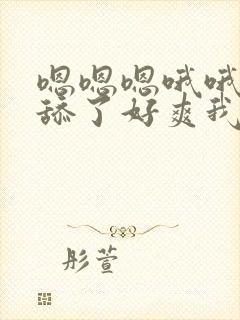 嗯嗯嗯哦哦
舔了好爽我
彤萱